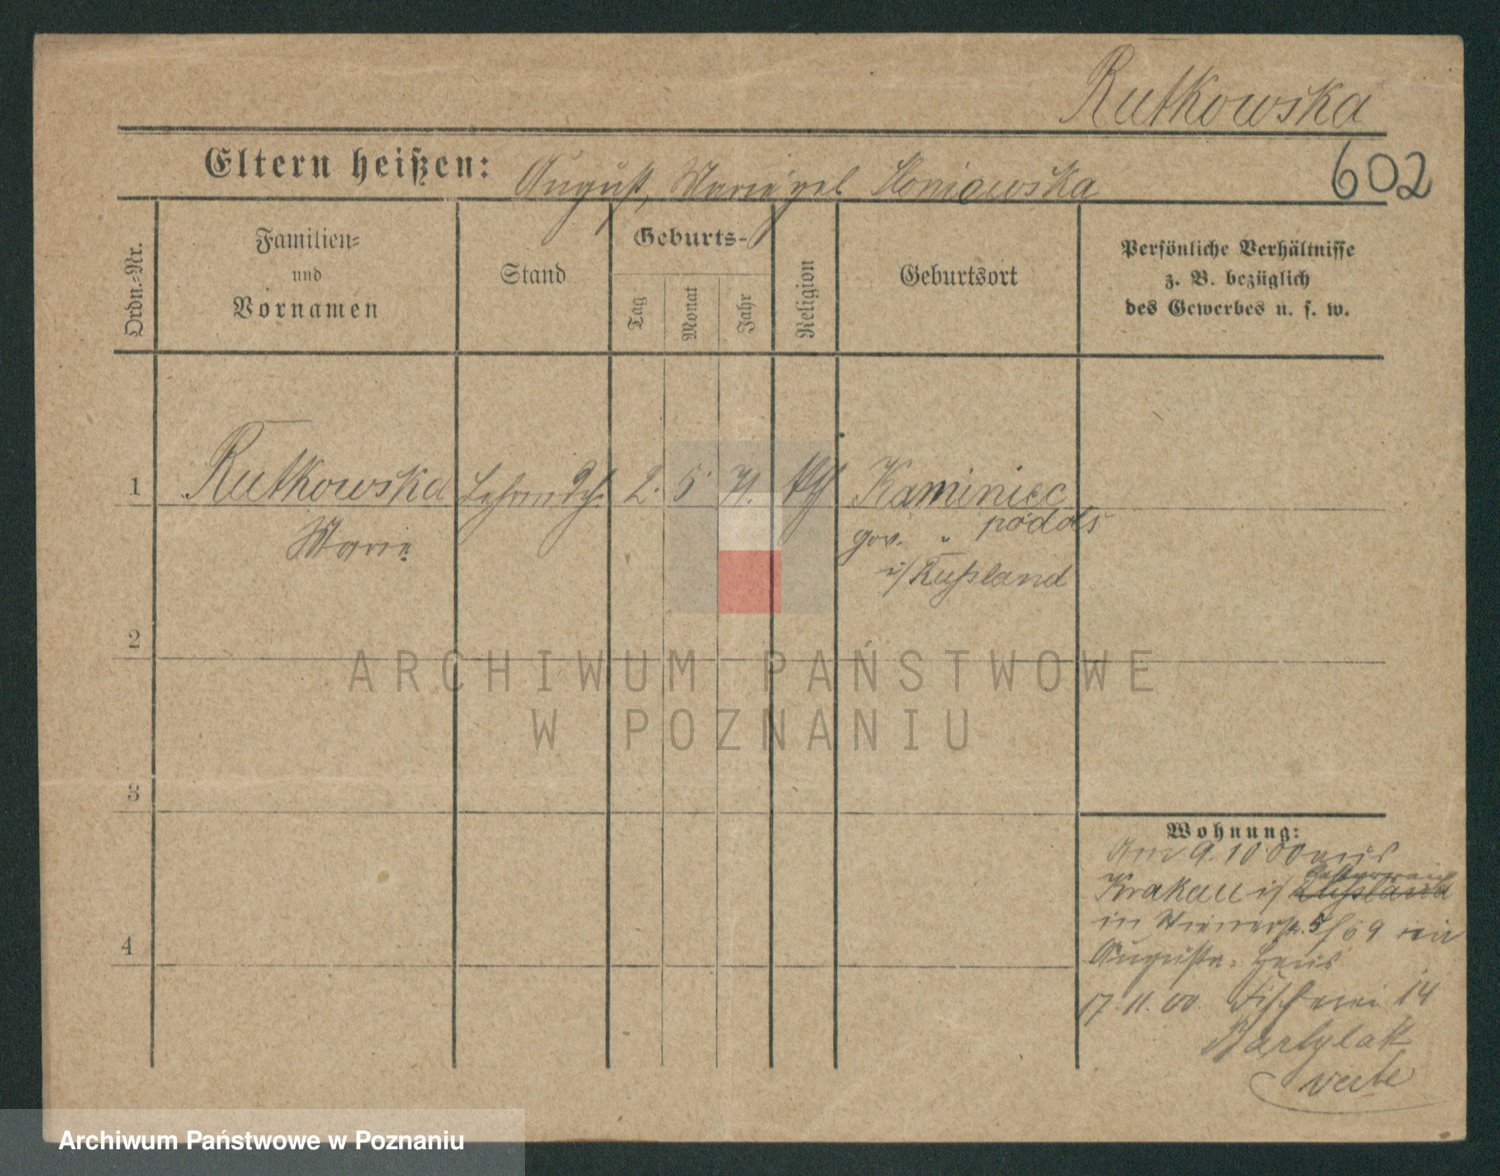 Rutkowska
602
Eltern heißen: August, Marie geb. Sloniowska
Ordn.=Nr.
Familien=
und
Vornamen
Stand
Geburts-
Tag
Monat
Jahr
Religion
Geburtsort
Persönliche Verhältnisse
z. B. bezüglich
des Gewerbes u. s. w.
1 Rutkowska 2. 5. 71. Kaminiec
Marie gov. " podols
i/ Rußland
2
3
4
Wohnung:
Am 9. 10 00 aus
Oesterreich
Krakau i/ Rußland
in Wienerstr. 5/69 im
Augusta- Haus
17. 11. 00. Fischerei 14
Bartylak
ARCHIWUM PAŃSTWOWE
W POZNANIU
Archiwum Państwowe w Poznaniu